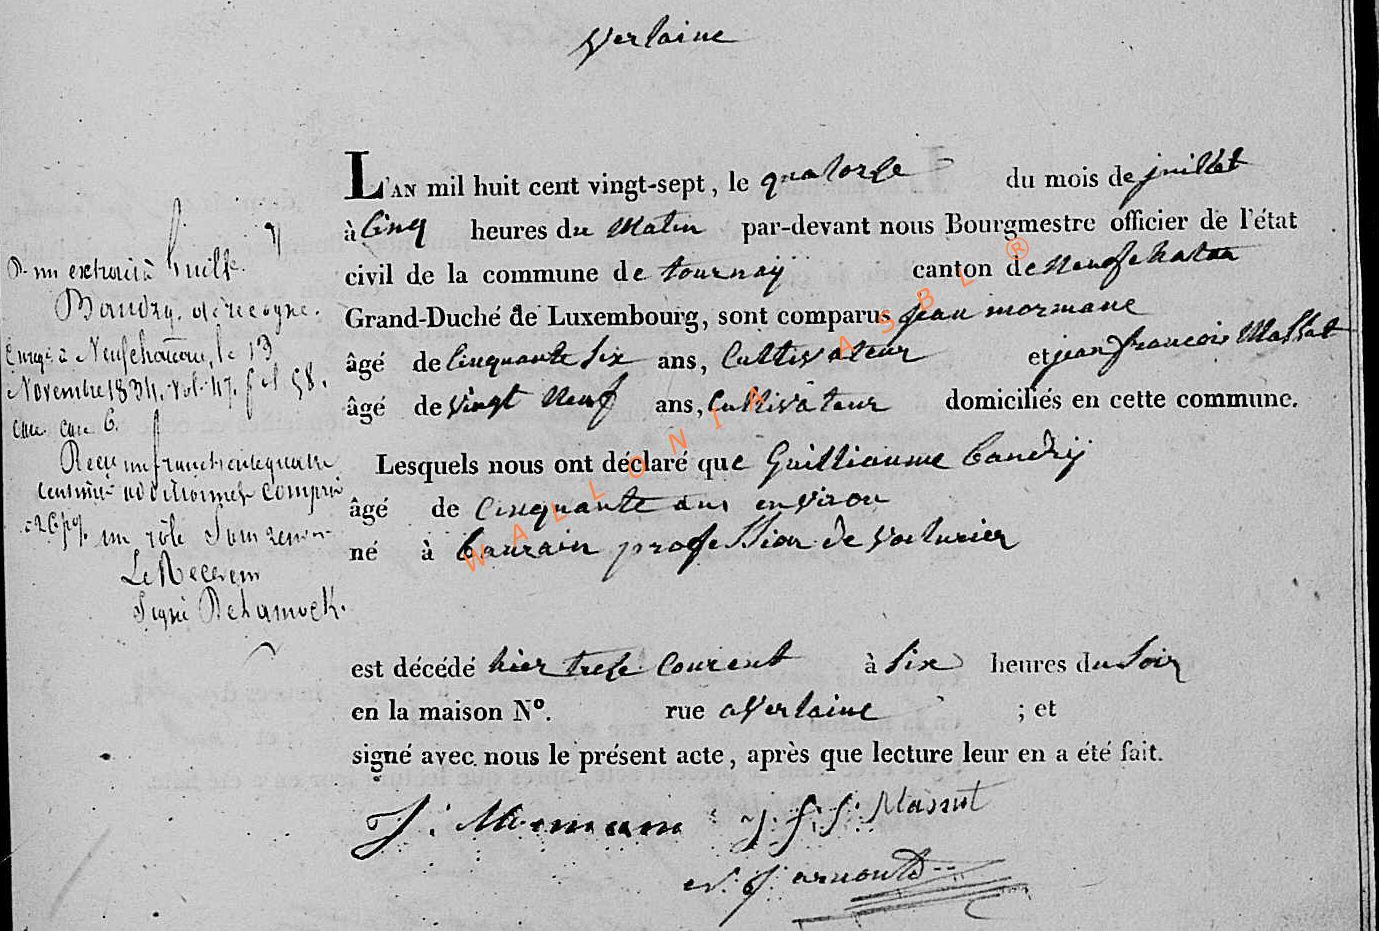 Verlaine
L'AN mil huit cent vingt-sept, le quatorze du mois de juillet
à Cinq heures du Matin par-devant nous Bourgmestre officier de l'état
civil de la commune de tournay canton de Neufchateau
Grand-Duché de Luxembourg, sont comparus jean mormane
âgé de Cinquante Six ans, Cultivateur et jean francois Massut
âgé de vingt Neuf ans, Cultivateur domiciliés en cette commune.
Lesquels nous ont déclaré que Guilliaume Baudry
âgé de Cinquante ans environ
né à profession de voiturier
est décédé hier trese Courent à Six heures du Soir
en la maison Nº. rue a Verlaine ; et
signé avec nous le présent acte, après que lecture leur en a été fait.
J. Mormane J. f. J. Massut
N. J. arnould
un extrait à
Baudry.
à Neufchateau, le 13
Novembre 1834. vol. 47. fol 58.
6.
Reçu un franc
centimes additionnels compris
un rôle Sans renvoi
Le Receveur
Signé
WALLONIA ASBL ®